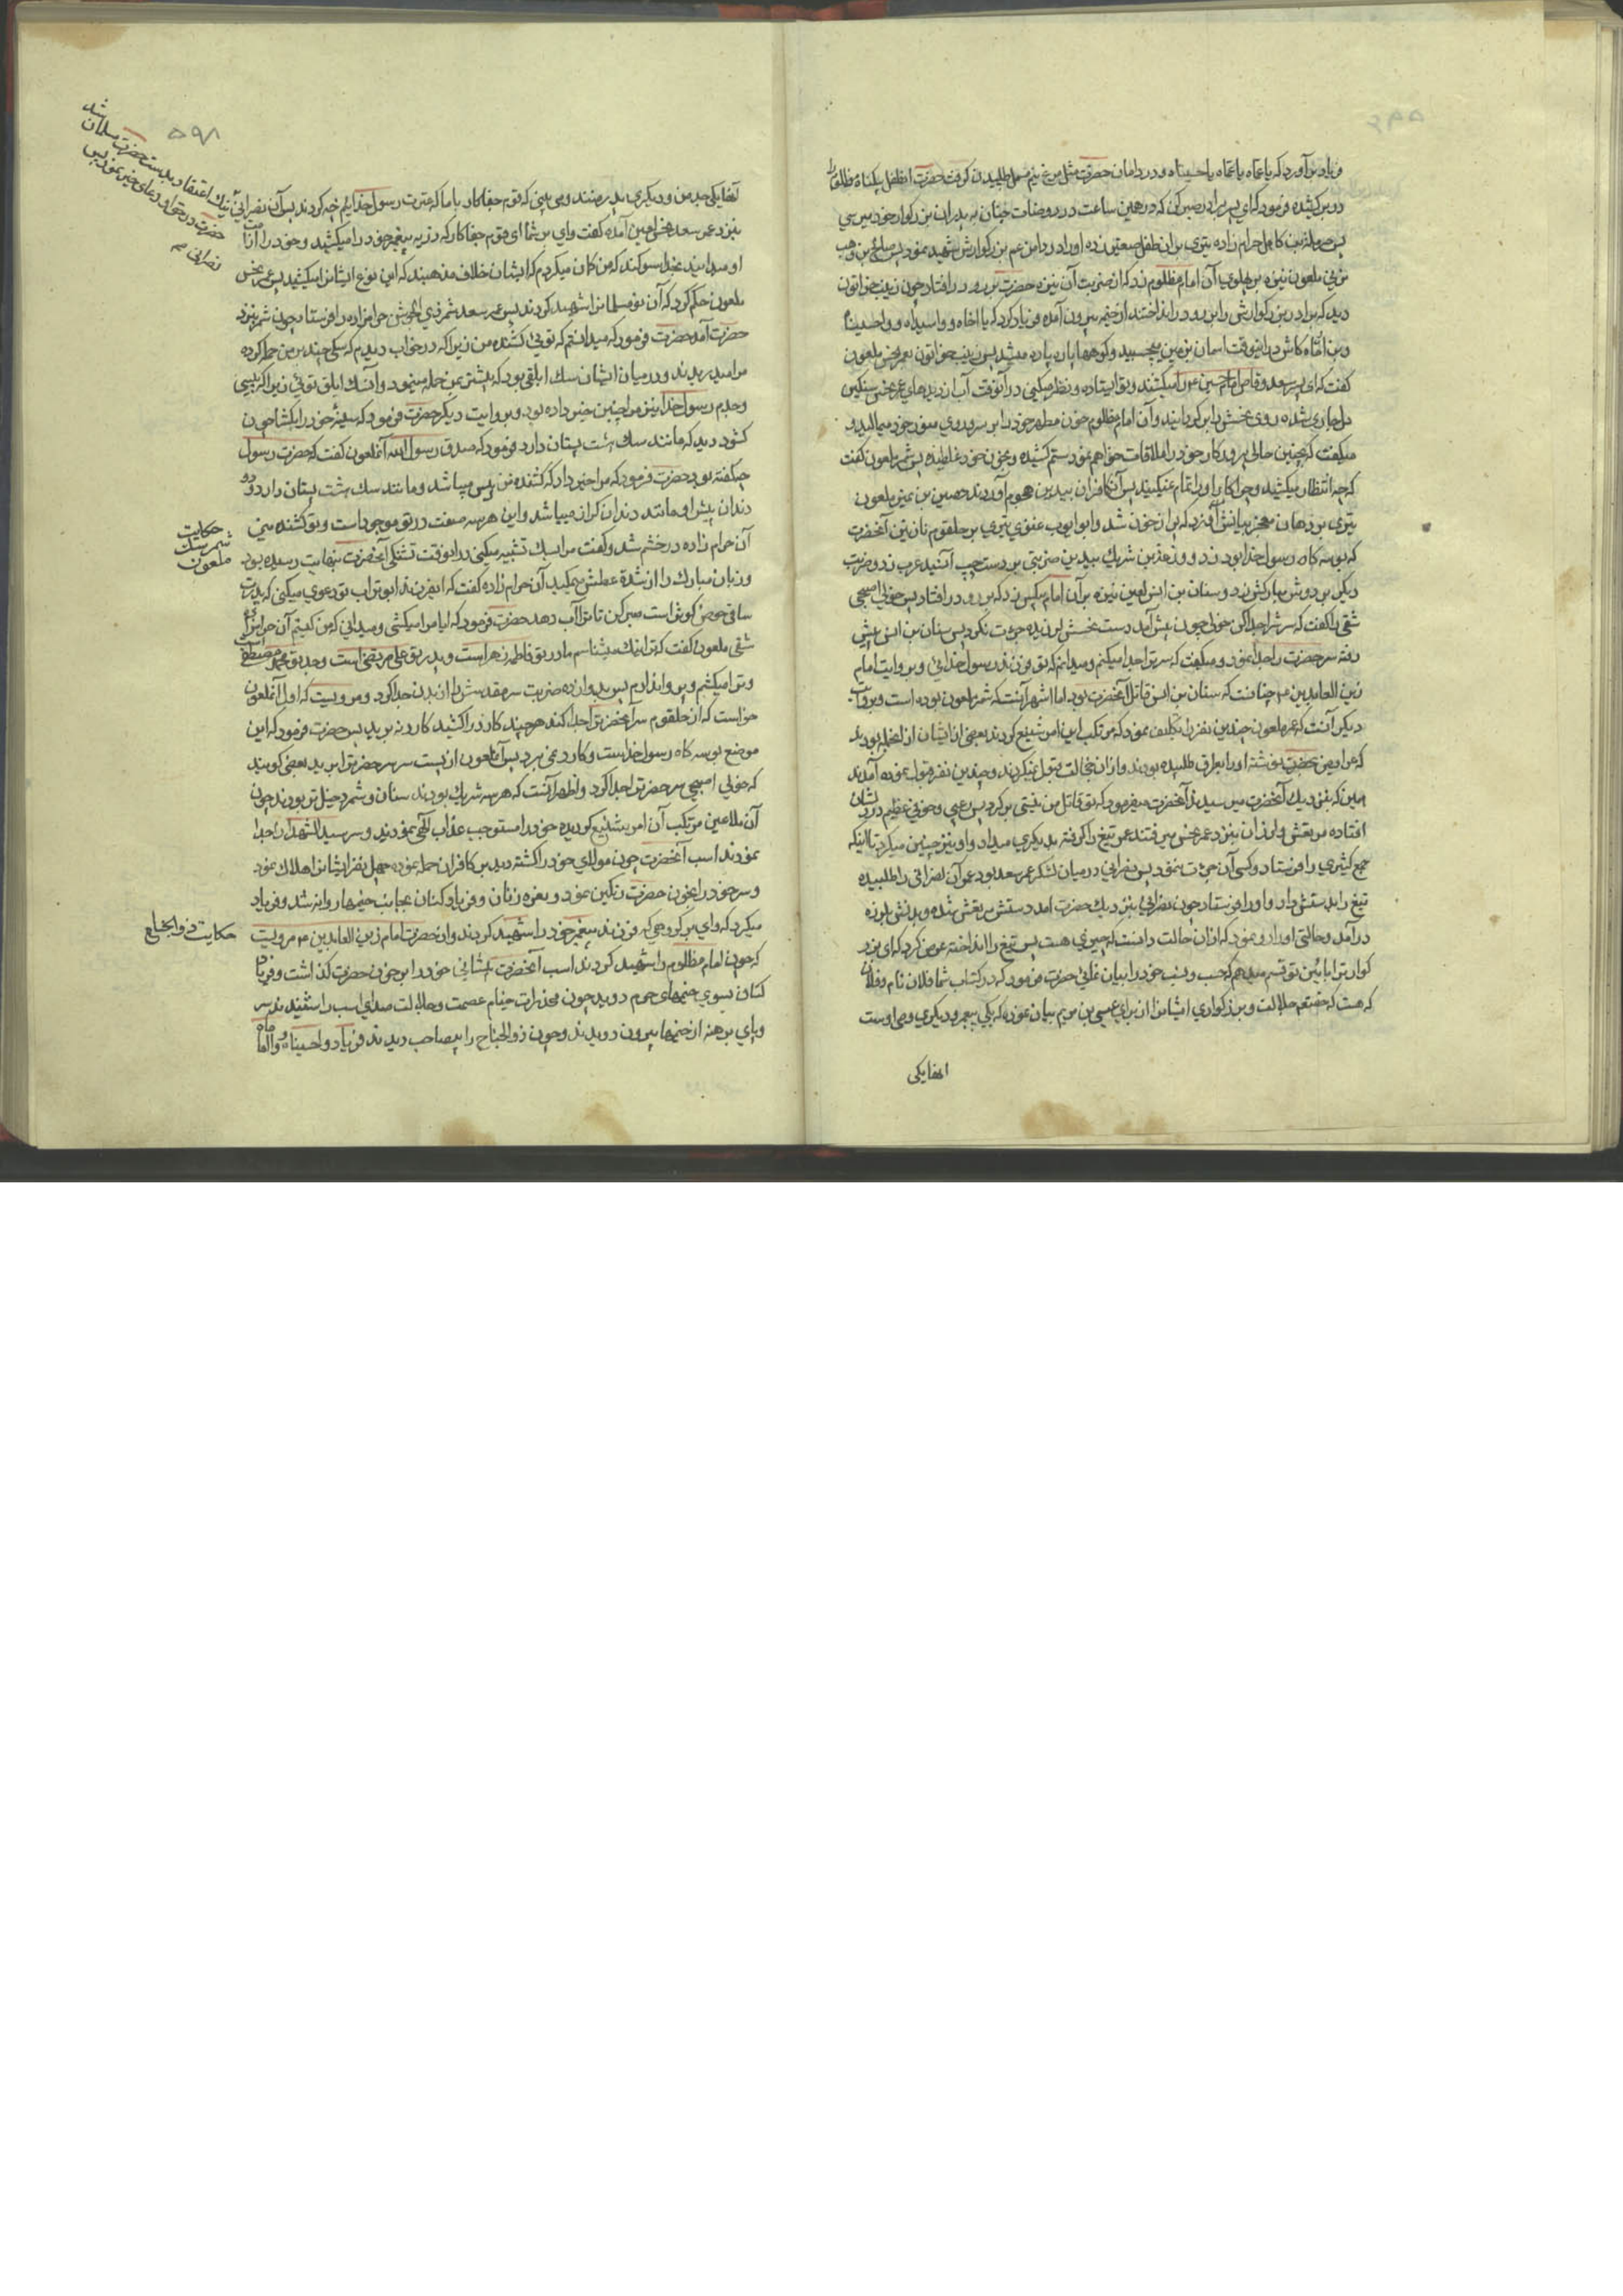 فریاد برآورد که یا عماه یا عماه یا حسیناه و در دامان حضرت مثل مرغ نیم بسمل طپیدن گرفت حضرت آن طفل بیکناه مظلوم را
در بر کشیده فرمود که ای پسر برادر صبر کن که در همین ساعت در روضات جنان به پدران بزرکوار خود میرسی
پس حرملة بن کاهل حرام زاده تیری بر آن طفل معصوم زده او را در دامن عم بزرکوارش شهید نمود پس صالح بن وهب
مزنی ملعون نیزه بر پهلوی آن امام مظلوم زد که از ضربت آن نیزه حضرت بر رو در افتاد چون زینب خواتون
دید که برادر بزرکوارش را بر رو در انداختند از خیمه بیرون آمده فریاد کرد که یا اخاه و واسیداه و واحسیناه
کاش در اینوقت اسمان بر زمین میچسبید و کوهها پاره پاره میشد پس زینب خواتون بعمر نحس ملعون
کفت که ای پسر سعد وقاص امام حسین را میکشند و تو ایستاده و نظر میکنی در آنوقت آب از دیدهای عمر نحس سنکین
دل جاری شده روی نحسش را برکردانید و آن امام مظلوم خون مطهر خود را بر سر و روی منور خود میمالید و
میکفت که بچنین حالی پروردکار خود را ملاقات خواهم نمود ستم کشیده و بخون خود غلطیده پس شمر ملعون کفت
که چه انتظار میکشید و چرا کار او را تمام نمیکنید پس آن کافران بیدین هجوم آوردند حصین بن نمیر ملعون
تیری بر دهان معجز بیانش زد که پر از خون شد و ابو ایوب غنوی تیری بر حلقوم نازنین آنحضرت
که بوسه کاه رسول خدا بود زد و زرعة بن شریک بیدین ضربتی بر دست چپ آنسید عرب زد و ضربت
دیکر بر دوش مبارکش زد و سنان بن انس لعین نیزه بر آن امام بیکس زد که بر رو در افتاد پس خولی اصبحی
شقی را کفت که سرش را جدا کن خولی چون پیش آمد دست نحسش لرزیده جرئت نکرد پس سنان بن انس پیش
رفته سر حضرت را جدا نمود و میکفت که سر ترا جدا میکنم و میدانم که تو فرزند رسول خدائی و بروایت امام
زین العابدین م چنانست که سنان بن انس قاتل آنحضرت بود اما اشهر آنست که شمر ملعون بوده است و بروایت
دیکر آنست که عمر ملعون چندین نفر را تکلیف نمود که مرتکب این امر شنیع کردند بعضی از ایشان از انجمله بودند
که عرایض بحضرت نوشته او را بعراق طلبیده بودند و از آن خجالت قبول نمیکردند و چندین نفر قبول نموده آمدند
همین که بنزدیک آنحضرت میرسیدند آنحضرت میفرمود که تو قاتل من نیستی برکرد پس رعبی و خوفی عظیم در دلشان
افتاده مرتعش و لرزان بنزد عمر نحس میرفتند عمر تیغ را کرفته بدیکری میداد و او نیز چنین میکرد تا اینکه
جمع کثیری را فرستاد و کسی آن جرئت ننمود پس نصرانی در میان لشکر عمر سعد بود عمر آن نصرانی را طلبیده
تیغ را بدستش داد و او را فرستاد چون نصرانی بنزدیک حضرت آمد دستش مرتعش شده و بدنش بلرزه
در آمد و حالتی او را رو نمود که از آن حالت دانست که چیزی هست پس تیغ را انداخته عرض کرد که ای بزر
کوار ترا بآئین تو قسم میدهم که حسب و نسب خود را بیان نمائی حضرت فرمود که در کتاب شما فلان نام و فلان
که هست که حقتعالی جلالت و بزرکواری ایشانرا از برای عیسی بن مریم بیان نموده که یکی پیغمبر و دیکری وصی اوست
آنها یکی
۵۹۸
آنها یکی جد من و دیکری پدر منند و می بینی که قوم جفاکار با ما که عترت رسول خدایم چه کردند پس آن نصرانی
نیک اعتقاد بدست حضرت مسلمان شد
حضرت در حق او دعای خیر نمود پس
نصرانی م
بنزد عمر سعد نحس لعین آمده کفت وای بر شما ای قوم جفاکار که ذریه پیغمبر خود را میکشید و خود را از امت
او میدانید بخدا سوکند که من کمان میکردم که ایشان خلاف مذهبند که این نوع ایشانرا میکشید پس عمر نحس
ملعون حکم کرد که آن نو مسلمانرا شهید کردند پس عمر سعد شمر ذی الجوشن حرامزاده را فرستاد چون شمر بنزد
حضرت آمد حضرت فرمود که میدانستم که توئی کشنده من زیرا که در خواب دیدم که سکی چند بر من حمله کرده
مرا میدریدند و در میان ایشان سک ابلقی بود که بیشتر بمن حمله مینمود و آن سک ابلق توئی زیرا که پیسی
و جدم رسول خدا نیز مرا چنین خبر داده بود و بروایت دیکر حضرت فرمود که سینۀ خود را بکشا چون
کشود دید که مانند سک هشت پستان دارد فرمود که صدق رسول الله آنملعون کفت که حضرت رسول
چه کفته بود حضرت فرمود که مرا خبر داد که کشنده من پیس میباشد و مانند سک هشت پستان دارد و دو
دندان پیش او مانند دندان کراز میباشد و این هر سه صفت در تو موجود است و تو کشنده منی
حکایت
شمر سک
ملعون
آن حرام زاده در خشم شد و کفت مرا بسک تشبیه میکنی در انوقت تشنکی آنحضرت بنهایت رسیده بود
و زبان مبارک را از شدة عطش میمکید آن حرام زاده کفت که ایفرزند ابوتراب تو دعوی میکنی که پدرت
ساقی حوض کوثر است صبر کن تا ترا آب دهد حضرت فرمود که ایا مرا میکشی و میدانی که من کیستم آن حرامزاده
شقی ملعون کفت که ترا نیک میشناسم مادر تو فاطمه زهراست و پدر تو علی مرتضی است و جد تو محمد مصطفی است
و ترا میکشم و پروا ندارم پس بدوازده ضربت سر مقدسش را از بدن جدا کرد و مرویست که اول آنملعون
خواست که از حلقوم سر آنحضرت را جدا کند هر چند کارد را کشید کارد نبرید پس حضرت فرمود که این
موضع بوسه کاه رسول خداست و کارد نمی برد پس آنملعون از پشت سر سر حضرت را برید بعضی کویند
که خولی اصبحی سر حضرت را جدا کرد و اظهر آنست که هر سه شریک بودند سنان و شمر دخیل تر بودند چون
آن ملاعین مرتکب آن امر شنیع کردیده خود را مستوجب عذاب الهی نمودند و سر سید الشهدا را جدا
نمودند اسب آنحضرت چون مولای خود را کشته دید بر کافران حمله نموده چهل نفر ایشانرا هلاک نمود
و سر خود را بخون حضرت رنکین نمود و نعره زنان و فریاد کنان بجانب خیمها روانه شد و فریاد
میکرد که وای بر کروهی که فرزند پیغمبر خود را شهید کردند و از حضرت امام زین العابدین م مرویست
حکایت ذوالجناح
که چون امام مظلوم را شهید کردند اسب آنحضرت پیشانی خود را بر خون حضرت کذاشت و فریاد
کنان بسوی خیمهای حرم دوید چون مخدرات خیام عصمت و جلالت صدای اسب را شنیدند سر
و پای برهنه از خیمها بیرون دویدند و چون ذوالجناح را بیصاحب دیدند فریاد واحسیناه و وا اماماه